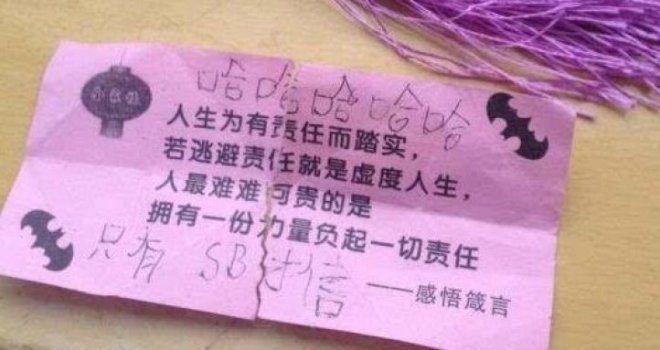 哈哈哈哈哈
人生为有责任而踏实，
若逃避责任就是虚度人生，
人最难难可贵的是
拥有一份力量负起一切责任
只有 SB 才信
——感悟箴言